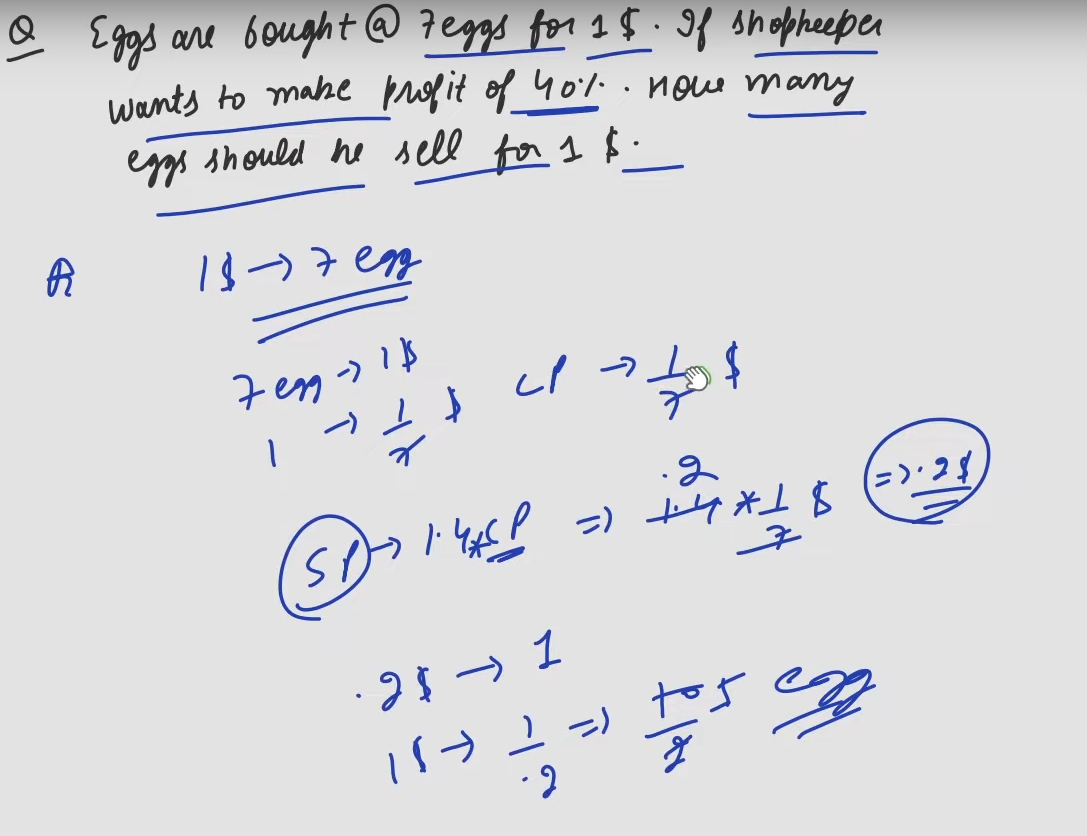 Q Eggs are bought @ 7eggs for 1 $. If shopkeeper
wants to make profit of 40%. how many
eggs should he sell for 1 $.
A 1$ → 7 egg
7 egg → 1$
1 → 1/7 $ CP → 1/7 $
SP → 1.4*CP => 1.4 * 1/7 $ => .2$
.2
.2$ → 1
1$ → 1/.2 => 10/2 5 egg